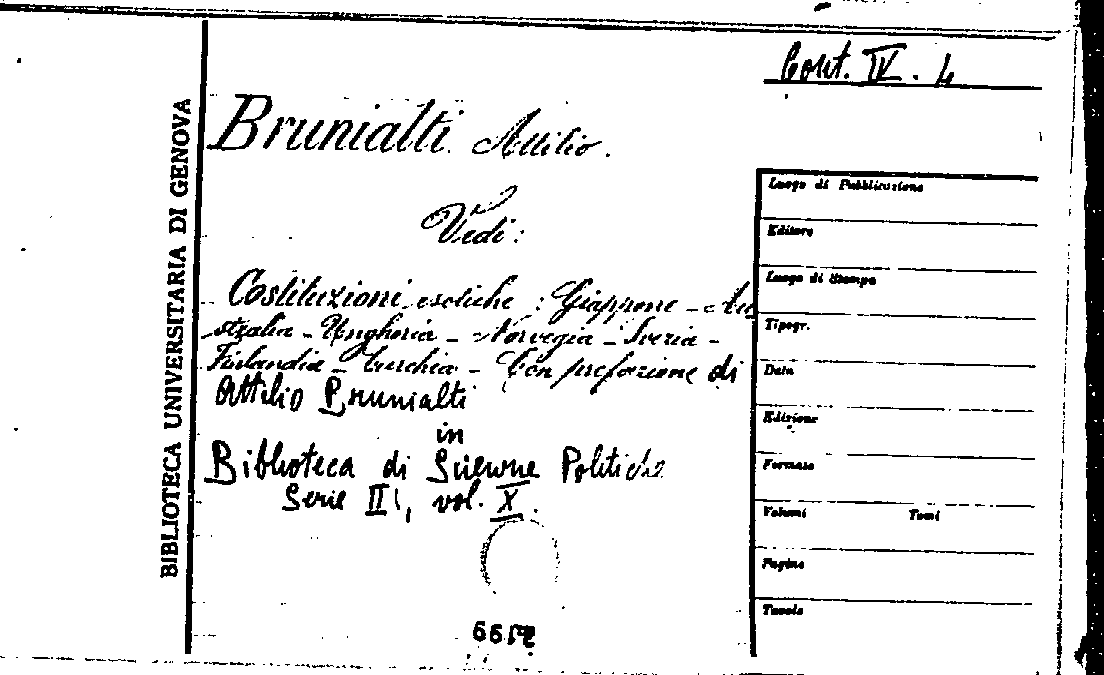 Cont. IV. 4
BIBLIOTECA UNIVERSITARIA DI GENOVA
Brunialti Attilio.
Vedi:
Costituzioni esotiche: Giappone - Au
stralia - Ungheria - Norvegia - Svezia -
Finlandia - Turchia - Con prefazione di
Attilio Brunialti
in
Biblioteca di Scienze Politiche
Serie II, vol. X.
Luogo di Pubblicazione
Editore
Luogo di Stampa
Tipogr.
Data
Edizione
Formato
Volumi Tomi
Pagine
Tavole